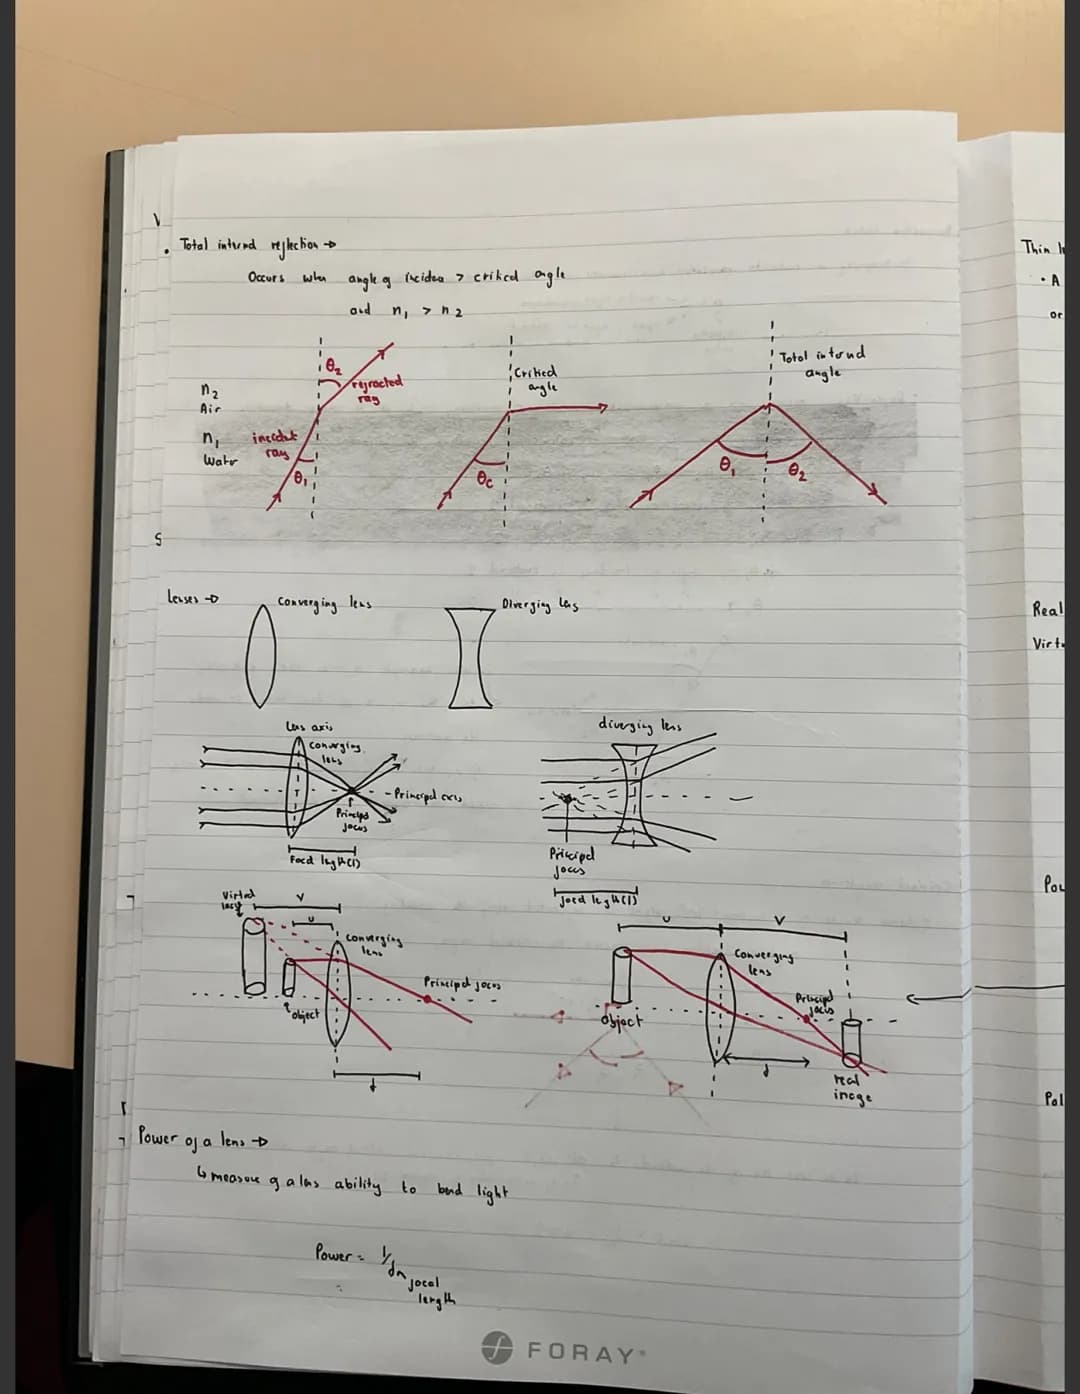 • Total internal reflection →
Occurs when angle of incidence > critical angle
and n₁ > n₂
n₂
Air
n₁
Water
θ₂
refracted
ray
incident
ray
θ₁
Critical
angle
θc
Total internal
angle
θ₁ θ₂
Lenses →
Converging lens
Diverging lens
Lens axis
Converging
lens
Principal axis
Principal
focus
Focal length (f)
diverging lens
Principal
focus
focal length (f)
Virtual
v
u
Converging
lens
Principal focus
object
f
u
v
Converging
lens
Principal
focus
object
f
real
image
Power of a lens →
↳ measure of a lens ability to bend light
Power = 1/f
focal
length
FORAY
Thin
• A
or
Real
Virt
Pow
Pol